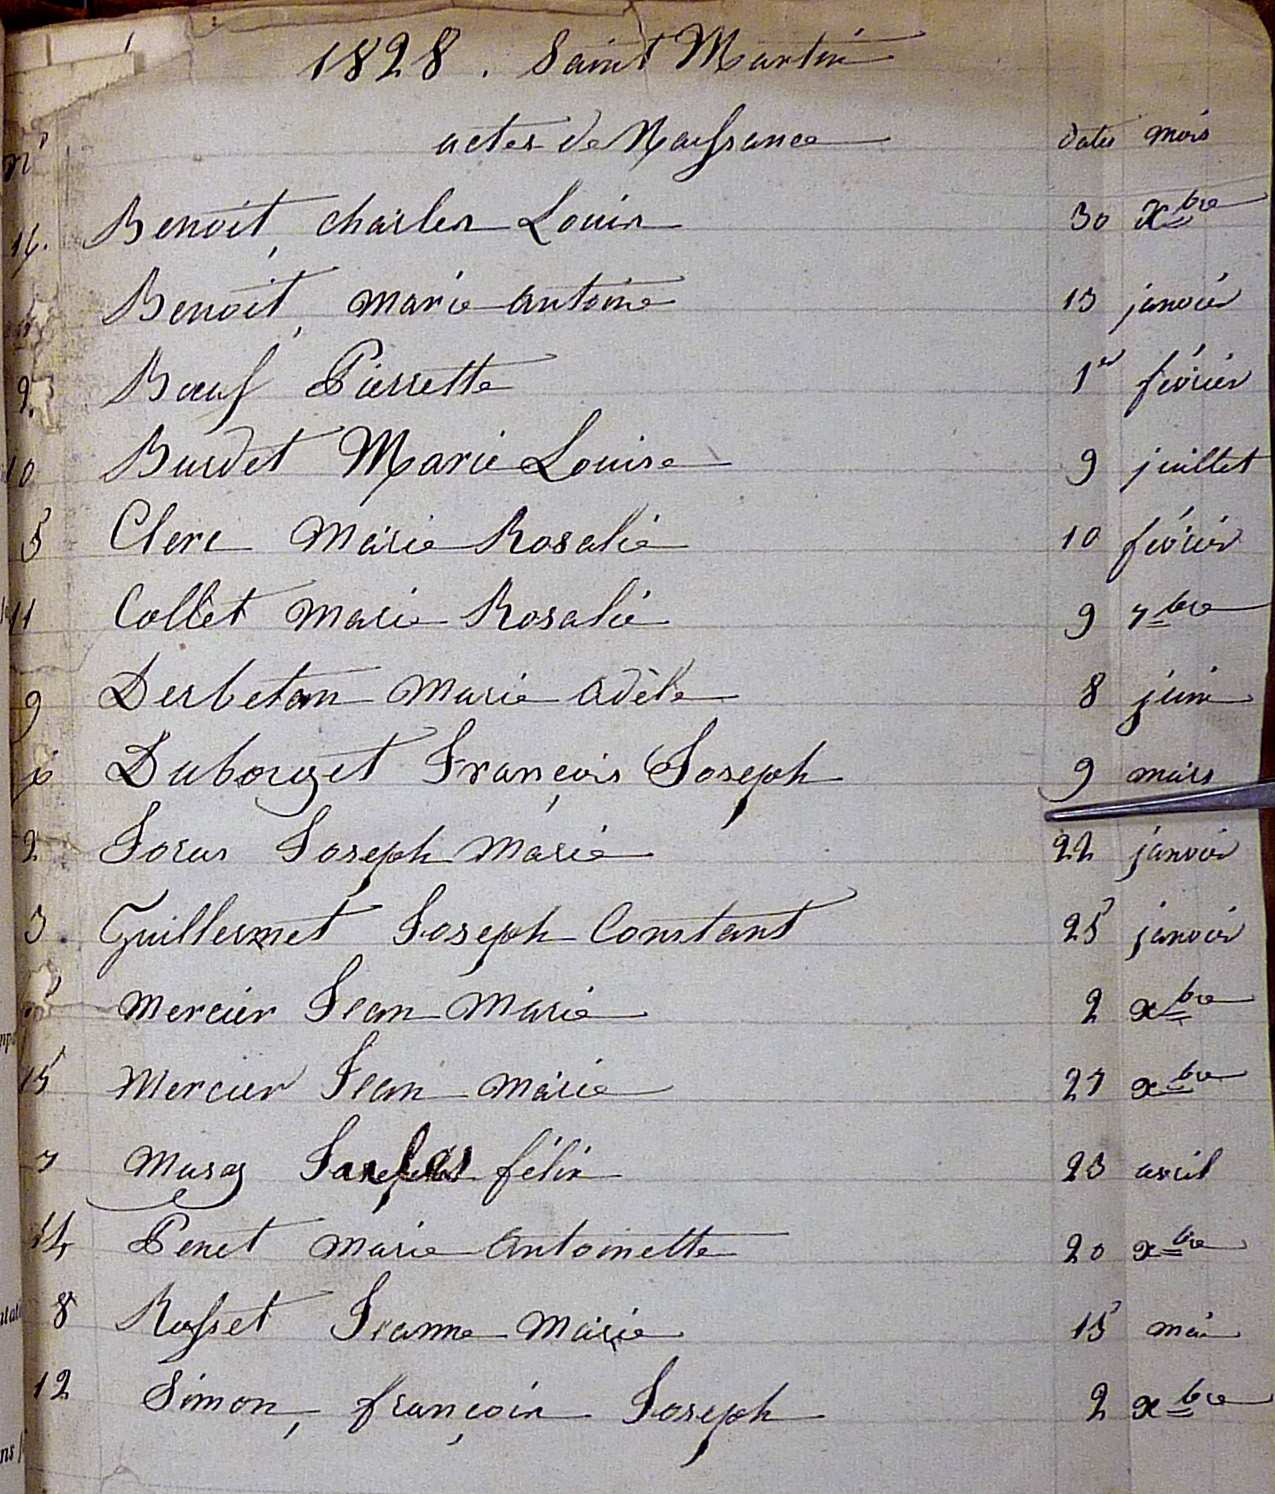 1828. Saint Martin
actes de Naissance dates mois
n°
16. Benoit, Charles Louis 30 Xbre
Benoit, Marie Antoine 13 janvier
Bœuf Pierrette 1er février
10 Burdet Marie Louise 9 juillet
5 Clerc Marie Rosalie 10 février
11 Collet Marie Rosalie 9 7bre
9 Desbetan Marie Adèle 8 juin
6 Dubourget François Joseph 9 mars
2 Joras Joseph Marie 22 janvier
3 Guillermet Joseph Constant 25 janvier
Mercier Jean Marie 2 xbre
15 Mercier Jean Marie 27 xbre
7 Félix 23 avril
14 Penet Marie Antoinette 20 xbre
8 Rosset Jeanne Marie 15 mai
12 Simon, François Joseph 2 xbre